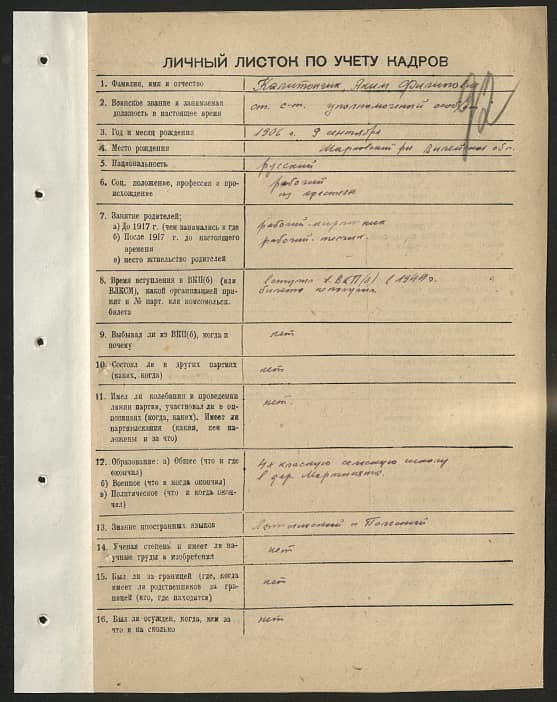 ЛИЧНЫЙ ЛИСТОК ПО УЧЕТУ КАДРОВ
72
1. Фамилия, имя и отчество
Капитончик, Яким Филипович
2. Воинское звание и занимаемая
должность в настоящее время
ст. с-т. уполномоченный особ
3. Год и месяц рождения
1906 г. 9 сентября
4. Место рождения
Вилейской обл.
5. Национальность
русский
6. Соц. положение, профессия и про-
исхождение
рабочий
из крестьян
7. Занятие родителей;
а) До 1917 г. (чем занимались и где
б) После 1917 г. до настоящего
времени
в) место жительство родителей
рабочий
рабочий
8. Время вступления в ВКП(б) (или
ВЛКСМ), какой организацией при-
нят и № парт. или комсомольск.
билета
вступил в ВКП(б) в 1944 г.
билета
9. Выбывал ли из ВКП(б), когда и
почему
нет
10. Состоял ли в других партиях
(каких, когда)
нет
11. Имел ли колебания в проведении
линии партии, участвовал ли в оп-
позициях (когда, каких). Имеет ли
партвзыскания (какия, кем на-
ложены и за что)
нет.
12. Образование: а) Общее (что и где
окончил)
б) Военное (что и когда окончил)
в) Политическое (что и когда окон-
чил)
4х класную сельскую школу
в дер.
13. Знание иностранных языков
и Польский
14. Ученая степень и имеет ли на-
учные труды и изобретения
нет
15. Был ли за границей (где, когда
имеет ли родственников за гра-
ницей (кто, где находится)
нет
16. Был ли осужден, когда, кем за
что и на сколько
нет